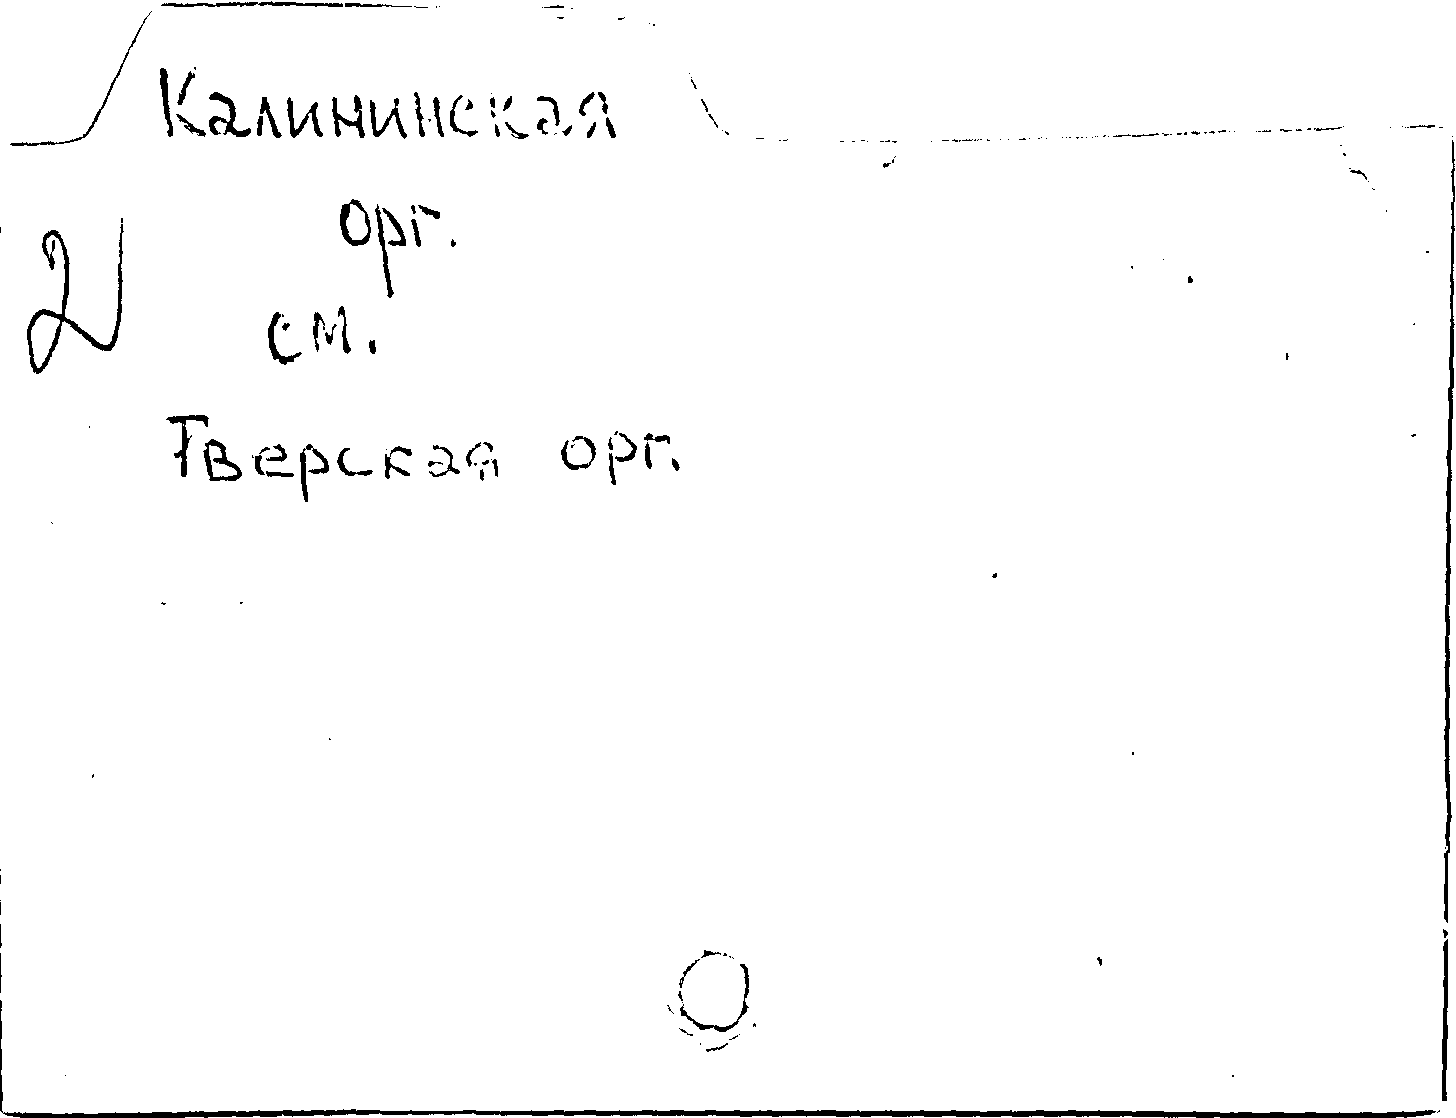 Калининская
орг.
2
см.
Тверская орг.